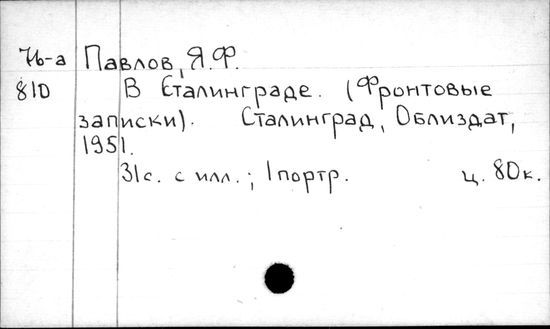 76-а Павлов, Я.Ф.
810 В Сталинграде. (Фронтовые
записки). Сталинград, Облиздат,
1951.
31с. с илл.; 1 портр. ц. 80к.